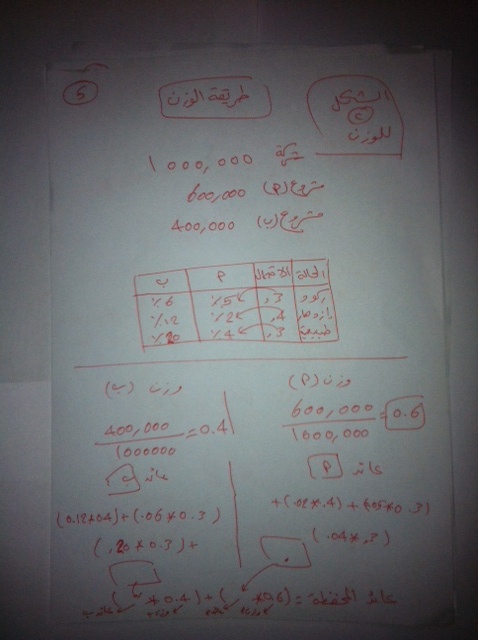 5
طريقة الوزن
الشكل
2
للوزن
شركة 1000,000
مشروع (P) 600,000
مشروع (ب) 400,000
الحالة الاحتمال P ب
ركود ,3 5٪ 6٪
ازدهار ,4 2٪ 12٪
طبيعية ,3 4٪ 20٪
وزن (P)
600,000 / 1000,000 = 0.6
عائد P
(.05*0.3) + (.02*.4) +
(.04*.3)
وزن (ب)
400,000 / 1000000 = 0.4
عائد ب
(0.12*04)+(.06*0.3)
(.20*0.3)+
عائد المحفظة = (*0.6) + (*0.4)